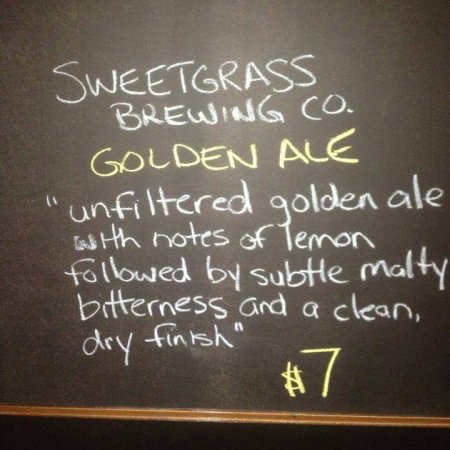 SWEETGRASS
BREWING CO.
GOLDEN ALE
"unfiltered golden ale
with notes of lemon
followed by subtle malty
bitterness and a clean,
dry finish"
$7